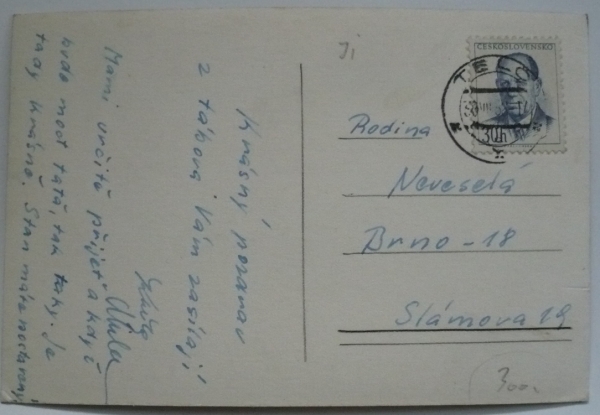 Krásný pozdrav
z tábora Vám zasílají
Mami určitě přijeď a když
bude moct táta, tak taky. Je
tady krásně. Stan máte postavený
Jí
ČESKOSLOVENSKO
TELČ
Rodina
Neveselá
Brno - 18
Slámova 19
300,-